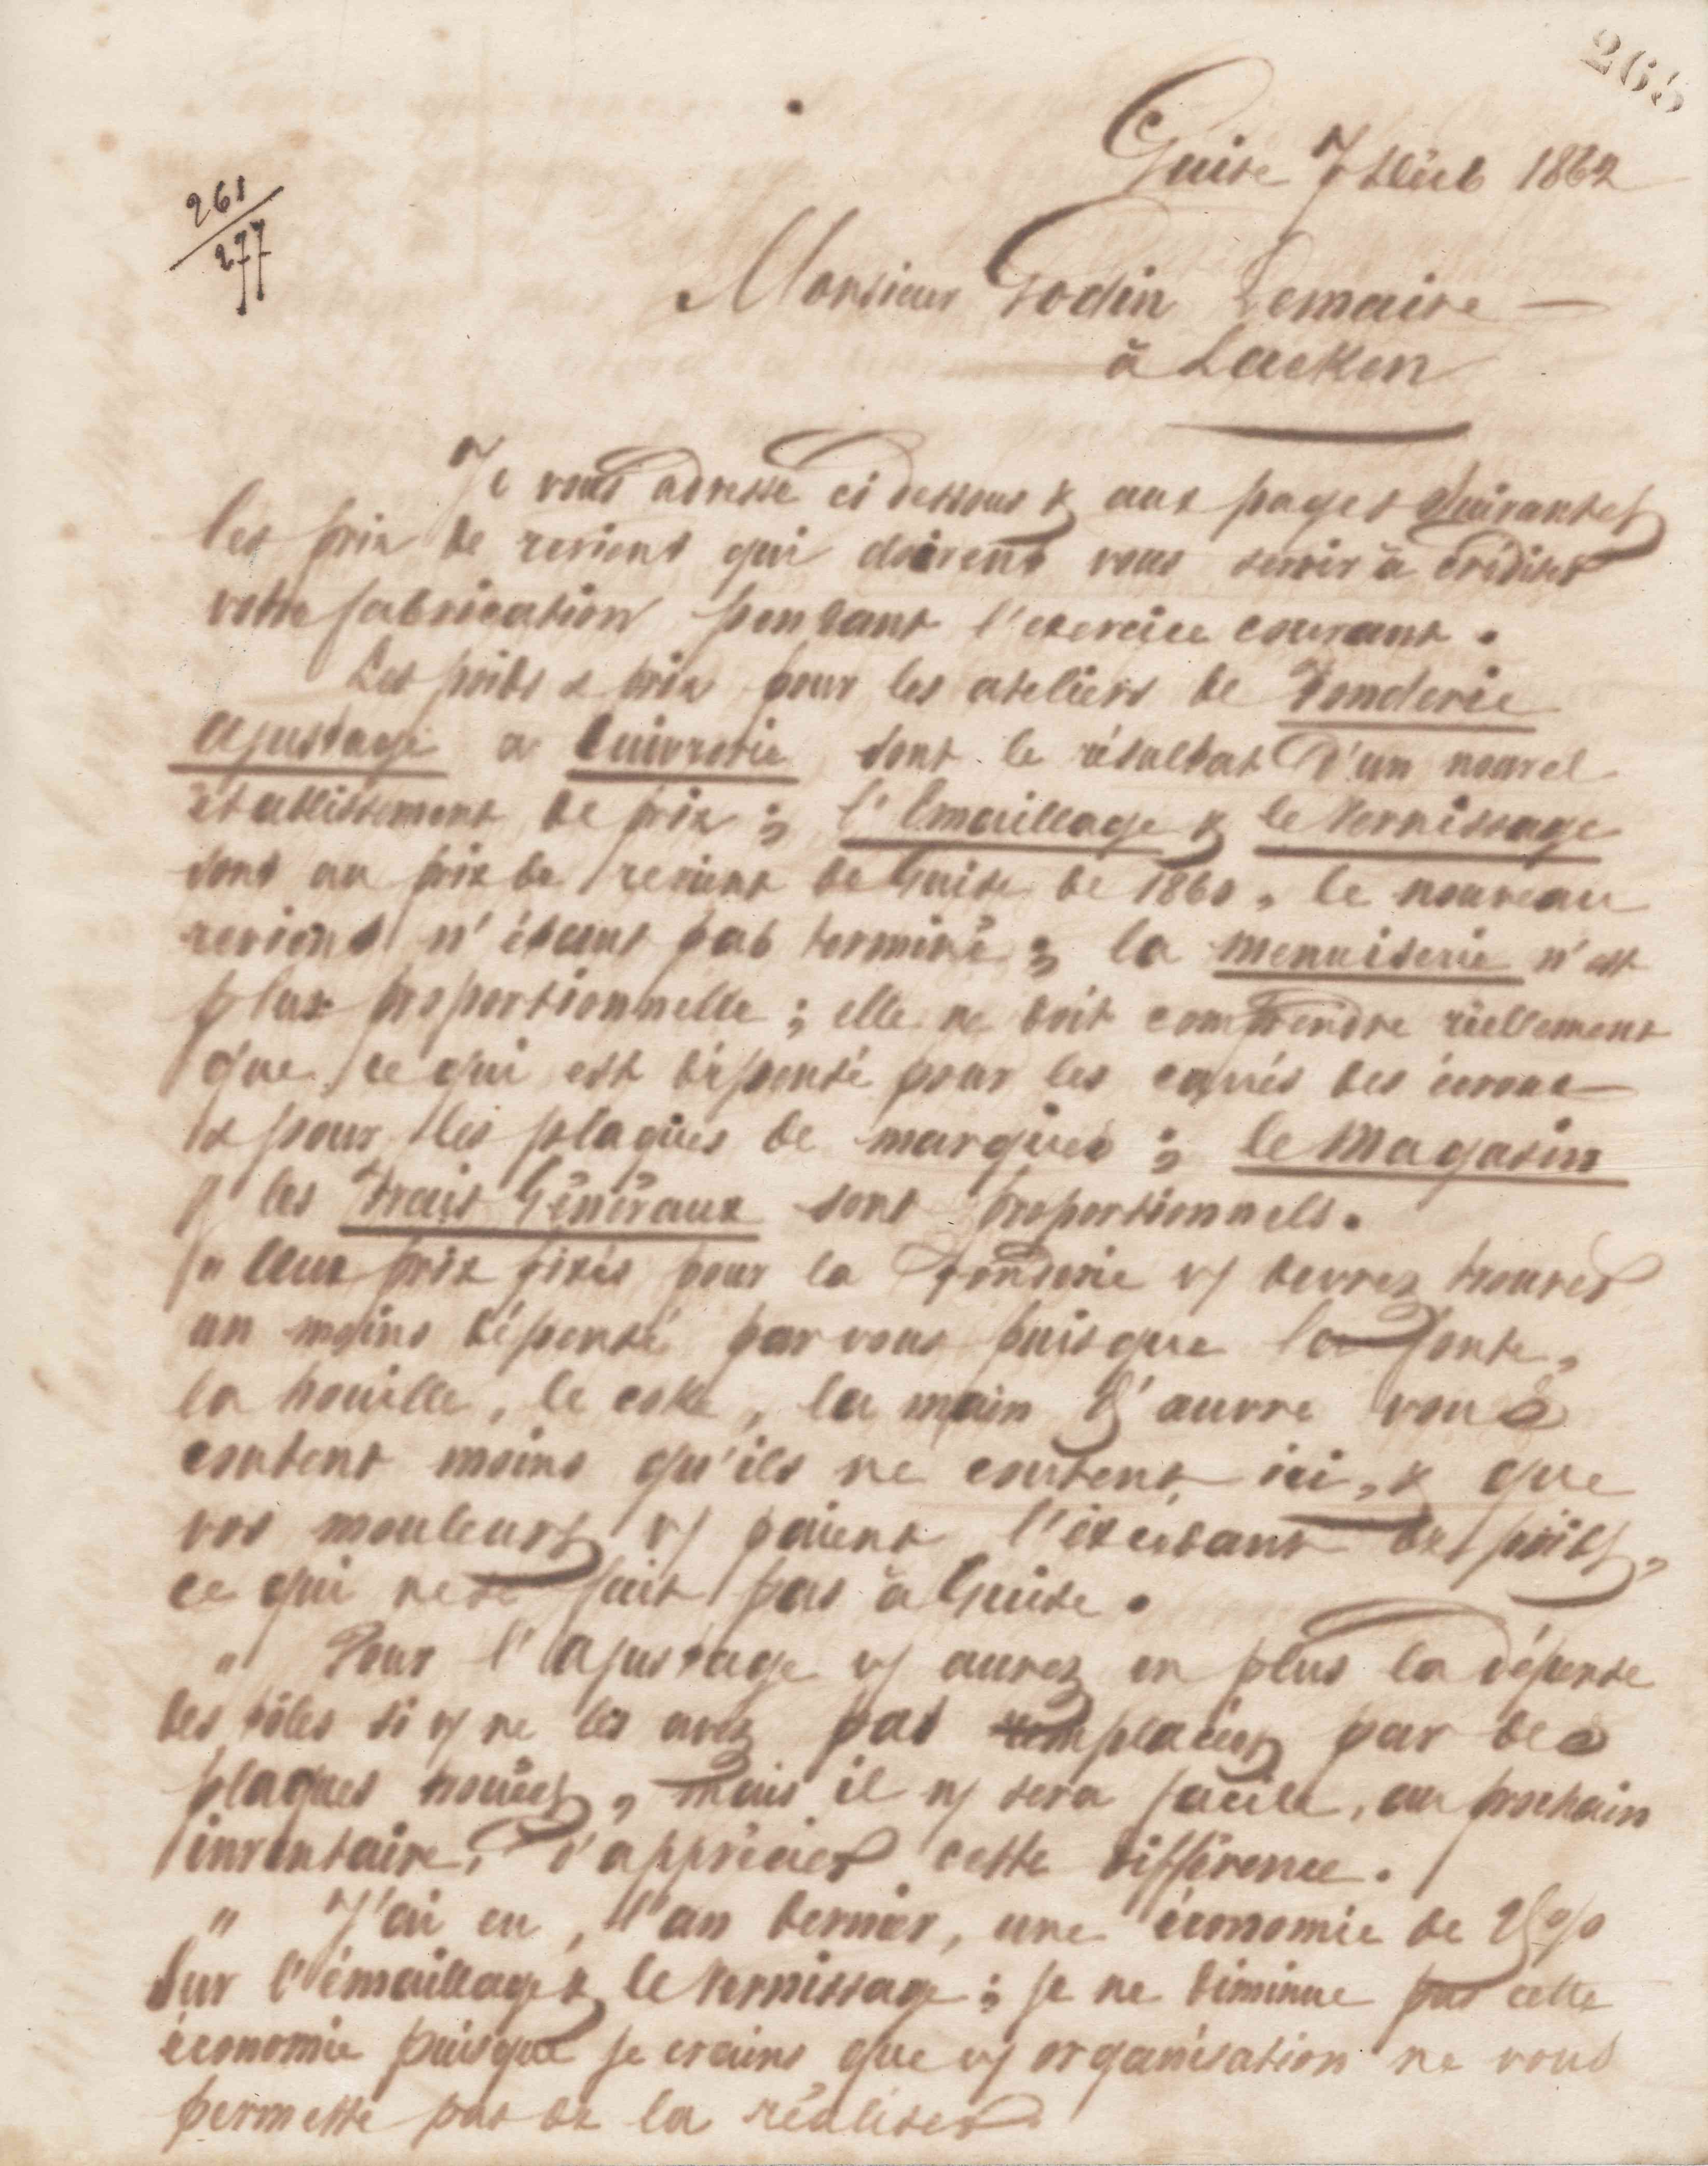 265
261
277
Guise 7 1862
Monsieur Godin Lemaire —
à Laeken
Je vous adresse ci dessous & aux pages suivantes
les prix de revient qui doivent vous servir à créditer
votre fabrication pendant l'exercice courant.
Les poids & prix pour les ateliers de Fonderie
Ajustage & Cuivrerie sont le résultat d'un nouvel
établissement de prix ; l'Emaillage & le Vernissage
sont au prix de revient de Guise de 1860, le nouveau
revient n'étant pas terminé ; la menuiserie n'est
plus proportionnelle ; elle ne doit comprendre réellement
que ce qui est dépensé pour les carrés des écrous
& pour les plaques de marques ; le Magasin
& les Frais Généraux sont proportionnels.
" Aux prix fixés pour la Fonderie vs devrez trouver
un moins dépensé par vous puisque la fonte,
la houille, le coke, la main d'œuvre vous
coutent moins qu'ils ne coutent ici, & que
vos mouleurs vs paient l'excédant des poids,
ce qui ne se fait pas à Guise.
" Pour l'Ajustage vs aurez en plus la dépense
des tôles si vs ne les avez pas remplacées par des
plaques , mais il vs sera facile, au prochain
inventaire, d'apprécier cette différence.
" J'ai eu, l'an dernier, une économie de 25%
sur l'émaillage & le vernissage ; je ne diminue pas cette
économie puisque je crains que vs organisation ne vous
permette pas de la réaliser.